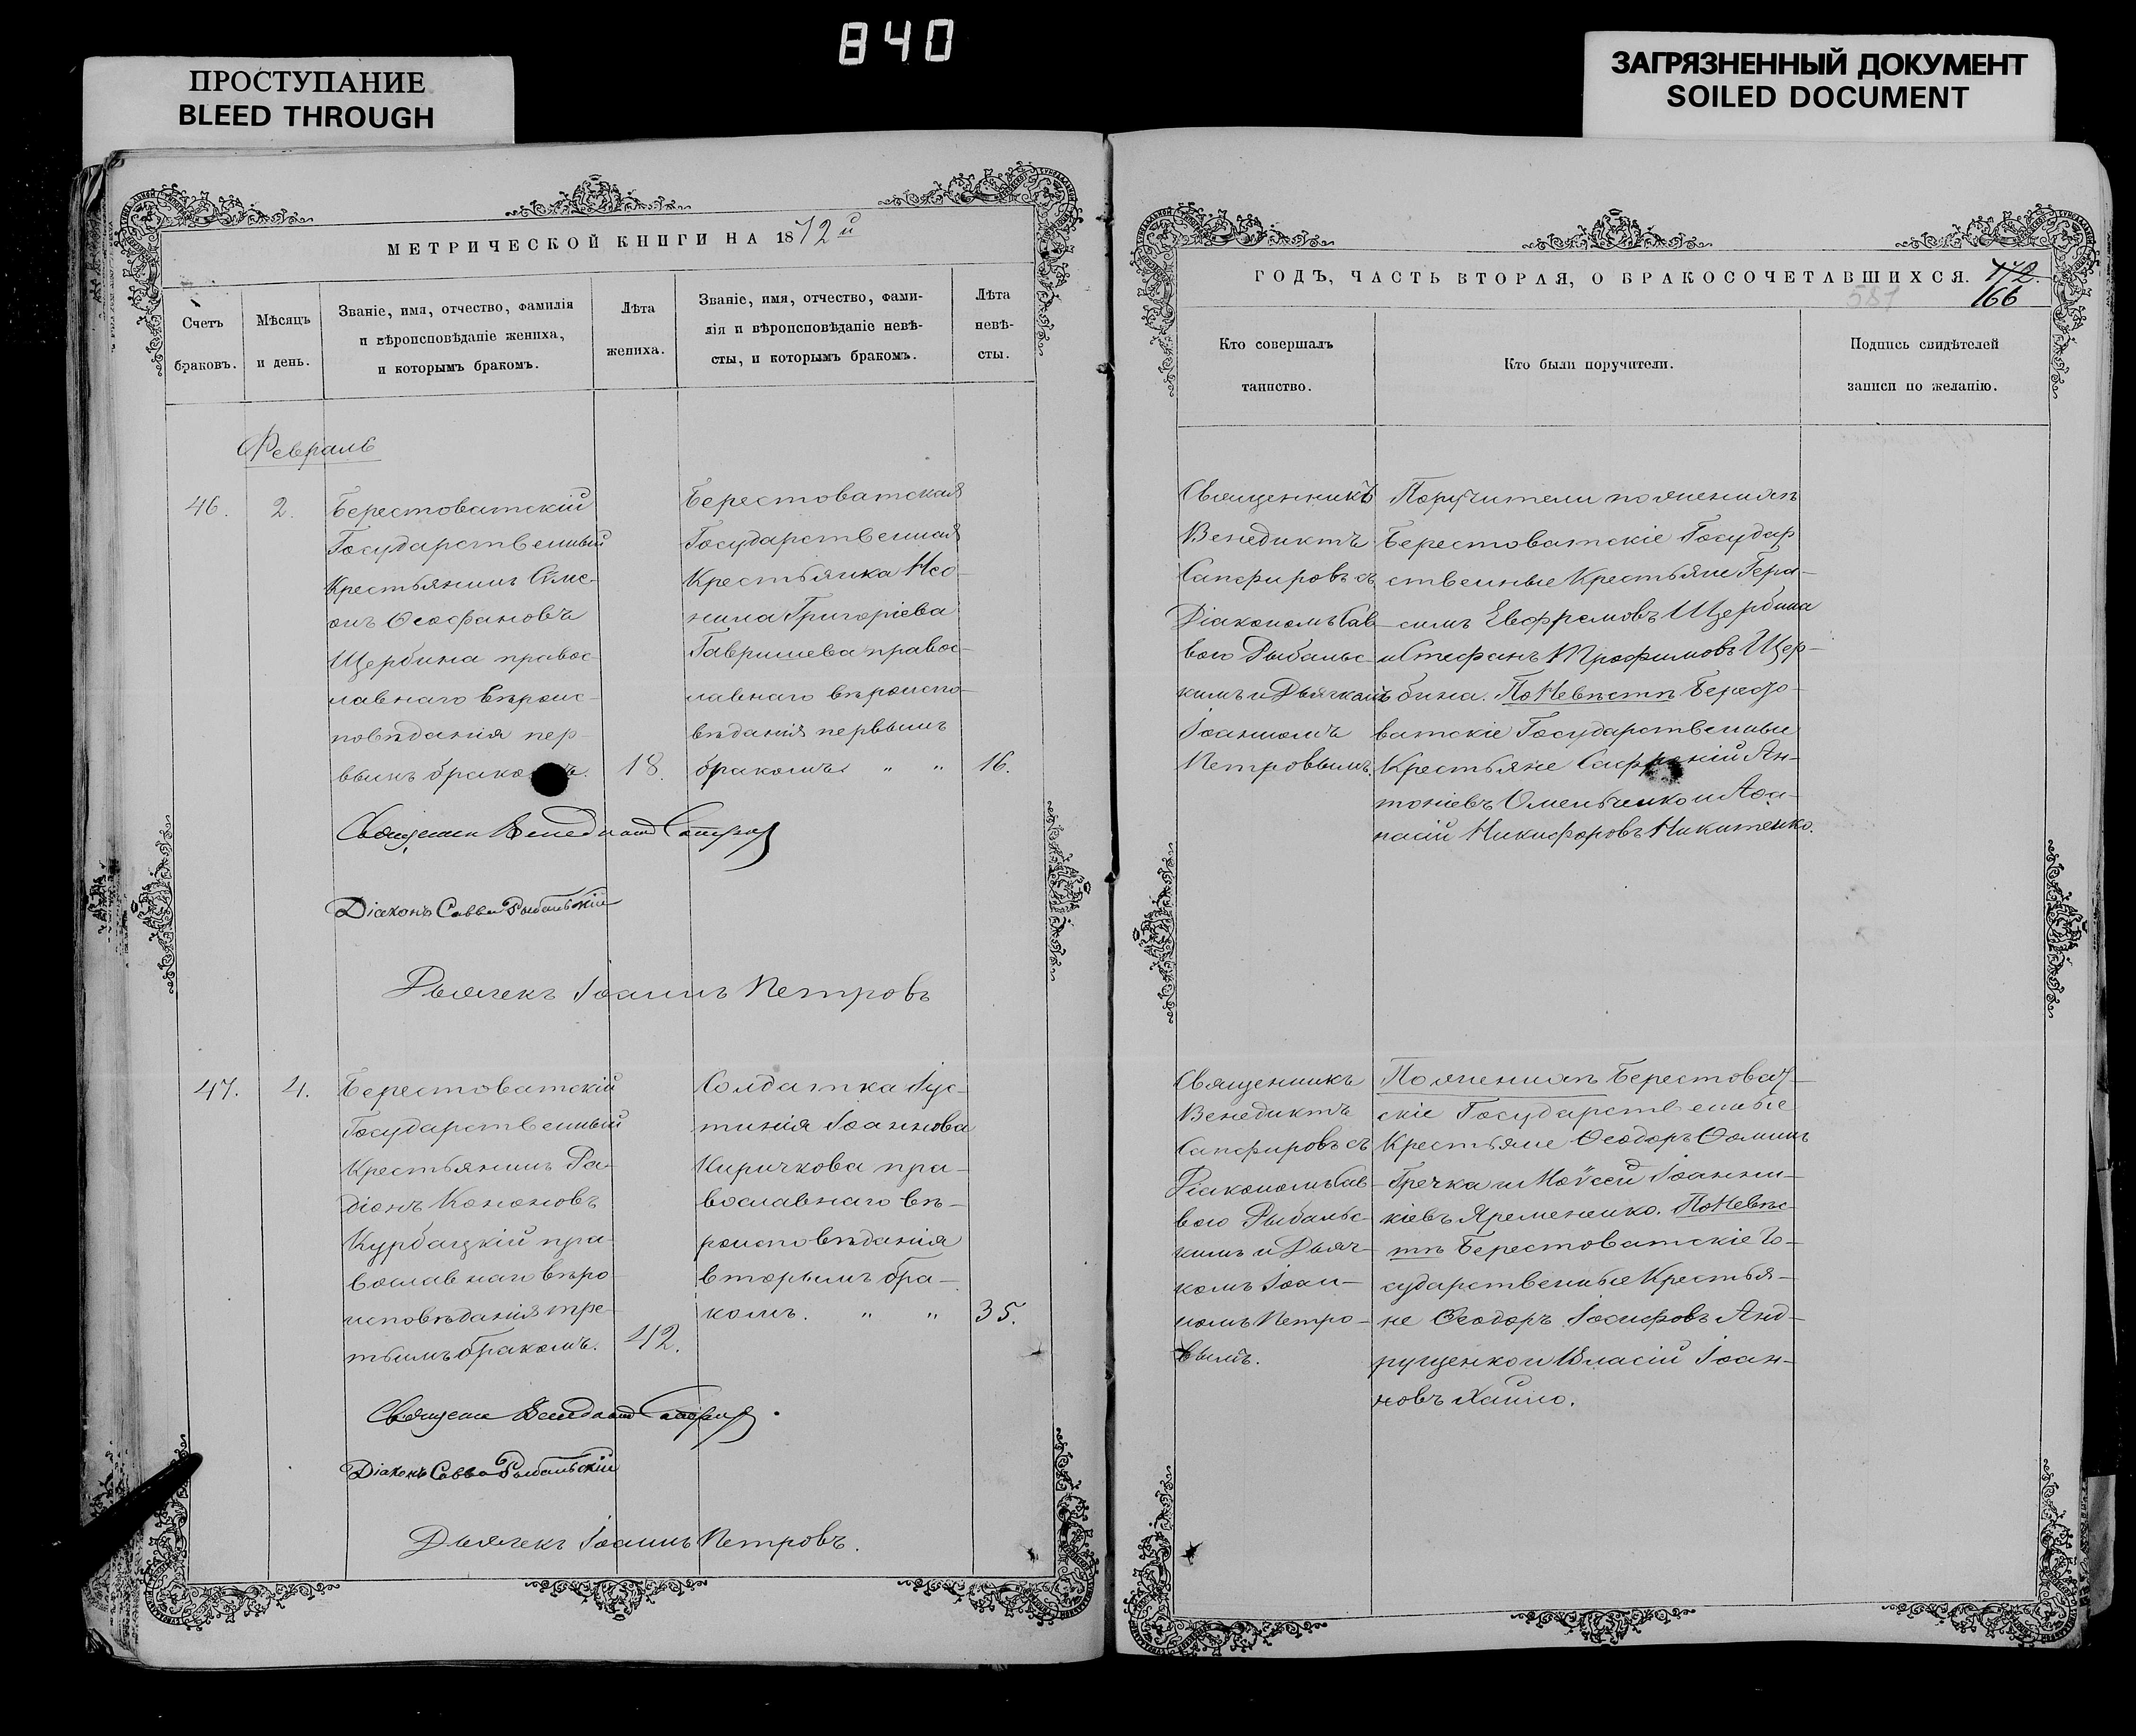 840
ПРОСТУПАНИЕ
BLEED THROUGH
ЗАГРЯЗНЕННЫЙ ДОКУМЕНТ
SOILED DOCUMENT
МЕТРИЧЕСКОЙ КНИГИ НА 1872й
Счетъ
браковъ.
Мѣсяцъ
и день.
Званіе, имя, отчество, фамилія
и вѣроисповѣданіе жениха,
и которымъ бракомъ.
Лѣта
жениха.
Званіе, имя, отчество, фами-
лія и вѣроисповѣданіе невѣ-
сты, и которымъ бракомъ.
Лѣта
невѣ-
сты.
Февраль
46.
2.
Берестоватскій
Государственный
Крестьянинъ Симе-
онъ Ѳеофановъ
Щербина правос-
лавнаго вѣроис-
повѣданія пер-
вымъ бракомъ.
18.
Берестоватская
Государственная
Крестьянка Нео-
нила Григоріева
Гавришева правос-
лавнаго вѣроиспо-
вѣданія первымъ
бракомъ. " "
16.
Священникъ Венедиктъ Сапфировъ
Діаконъ Савва Рыбальскій
Дьячекъ Іоаннъ Петровъ
47.
4.
Берестоватскій
Государственный
Крестьянинъ Ра-
діонъ Кононовъ
Курбацкій пра-
вославнаго вѣро-
исповѣданія тре-
тьимъ бракомъ.
42.
Солдатка Іус-
тинія Іоаннова
Киричкова пра-
вославнаго вѣ-
роисповѣданія
вторымъ бра-
комъ. " "
35.
Священникъ Венедиктъ Сапфировъ
Діаконъ Савва Рыбальскій
Дьячекъ Іоаннъ Петровъ.
ГОДЪ, ЧАСТЬ ВТОРАЯ, О БРАКОСОЧЕТАВШИХСЯ.
172.
581
166
Кто совершалъ
таинство.
Кто были поручители.
Подпись свидѣтелей
записи по желанію.
Священникъ
Венедиктъ
Сапфировъ съ
Діакономъ Сав-
вою Рыбальс-
кимъ и Дьячкомъ
Іоанномъ
Петровымъ.
Поручители по женихѣ
Берестоватскіе Государ
ственные Крестьяне Гера-
симъ Евфремовъ Щербина
и Стефанъ Трофимовъ Щер-
бина. По Невѣстѣ Бересто-
ватскіе Государственные
Крестьяне Софроній Ан-
тоніевъ Омельченко и Аѳа-
насій Никифоровъ Никитенко.
Священникъ
Венедиктъ
Сапфировъ съ
Діакономъ Сав-
вою Рыбальс-
кимъ и Дьяч-
комъ Іоан-
номъ Петро-
вымъ.
По женихѣ Берестоват-
скіе Государственные
Крестьяне Ѳеодоръ Ѳоминъ
Гречка и Моѵсей Іоанни-
кіевъ Яременко. По Невѣс-
тѣ Берестоватскіе Го-
сударственные Крестья-
не Ѳеодоръ Іосифовъ Анд-
рущенко и Власій Іоан-
новъ Хайло.